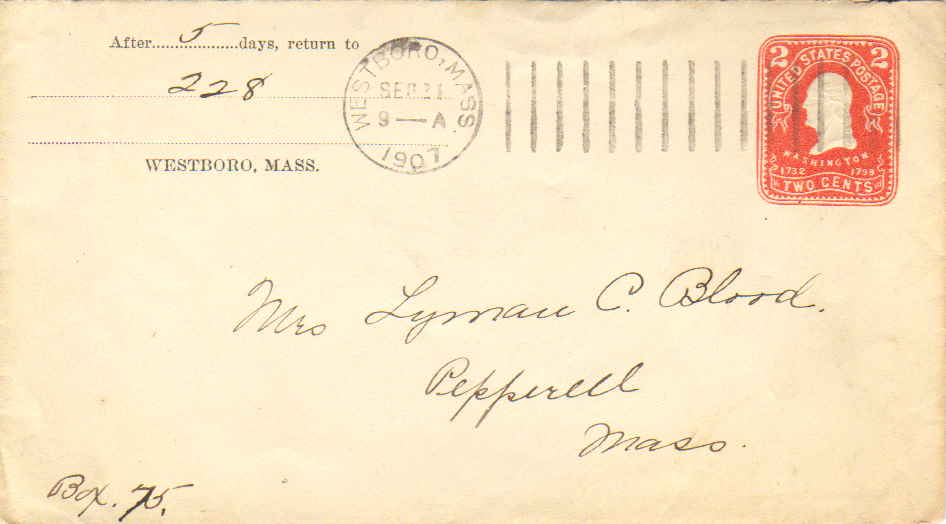 After 5 days, return to
228
WESTBORO, MASS.
WESTBORO, MASS
SEP 21
9 — A
1907
2 2
UNITED STATES POSTAGE
WASHINGTON
1732 1799
TWO CENTS
Mrs Lyman C. Blood.
Pepperell
Mass.
Box. 75.